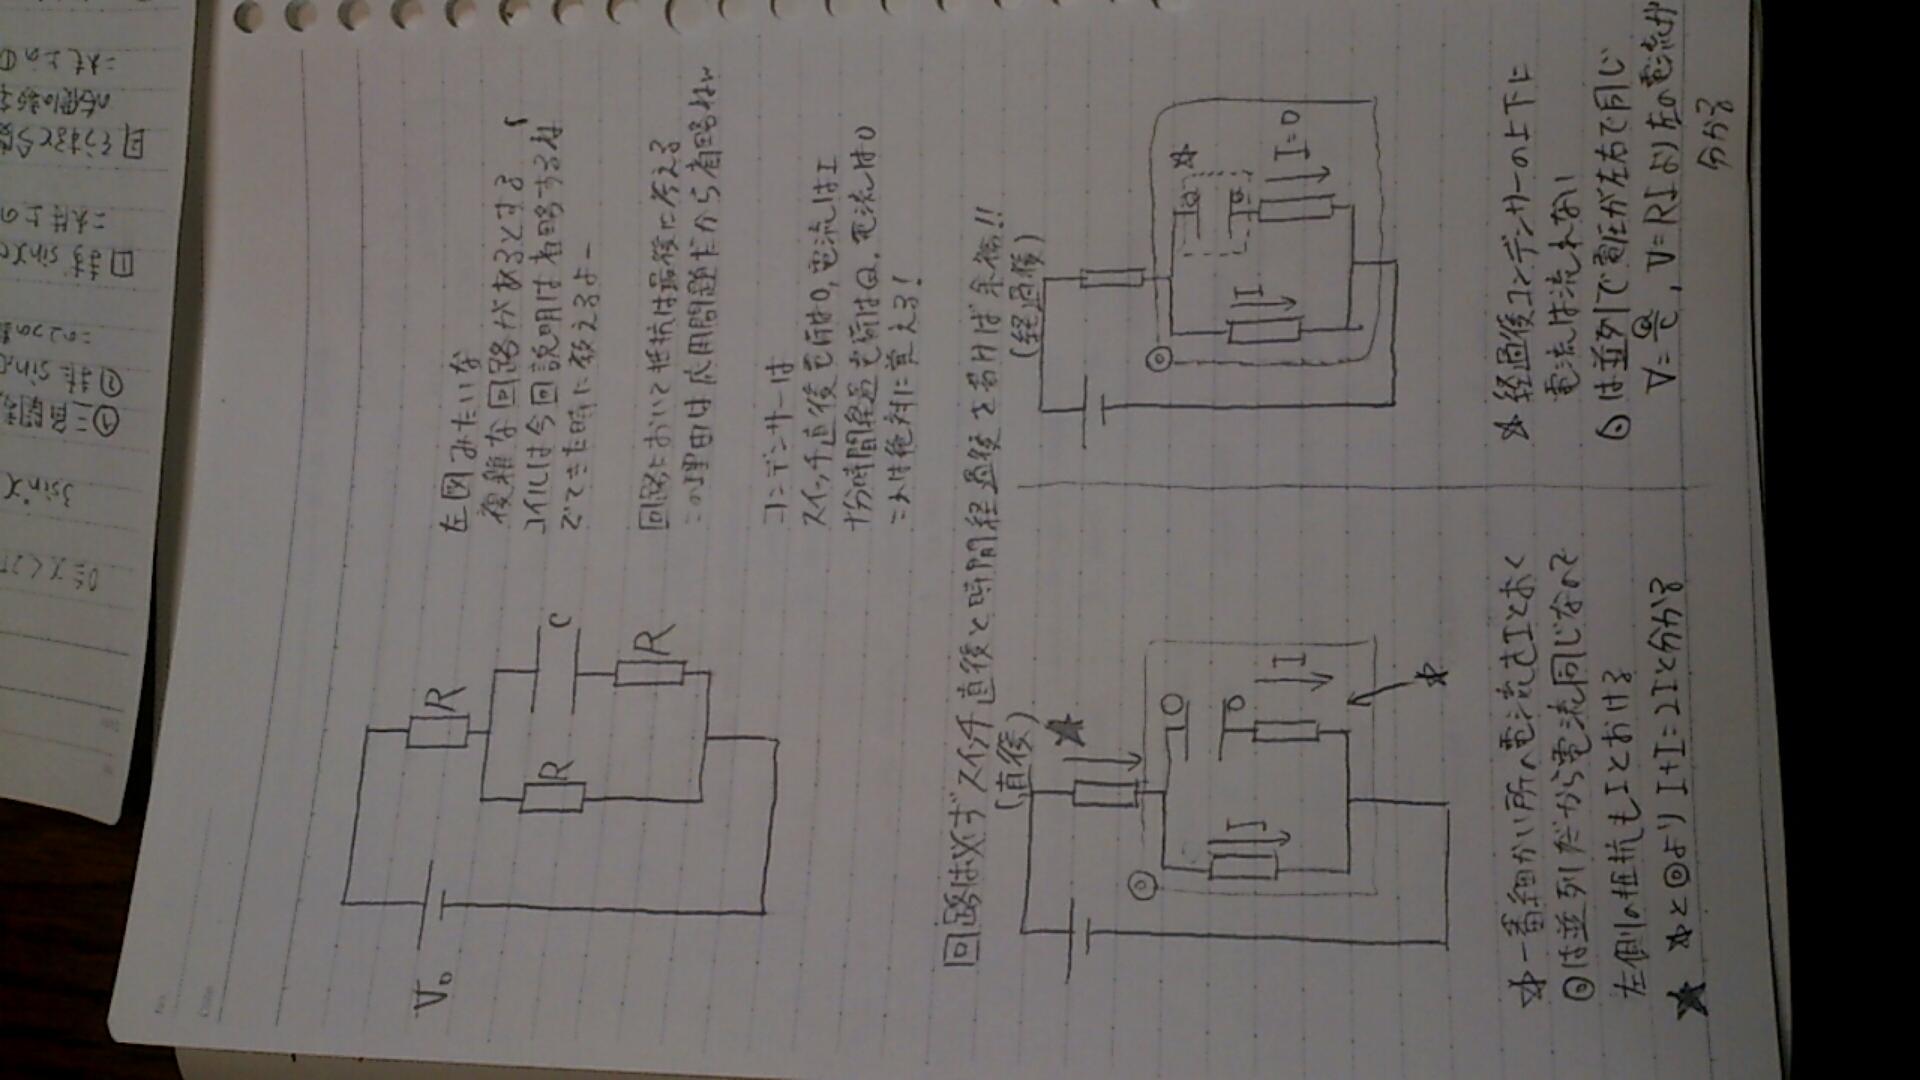 V₀
R
R
C
R
左図みたいな
複雑な回路があるとする
コイルは今回説明は省略するね
でてきた時に教えるよー
回路において抵抗は最後に考える
この理由は応用問題だから省略ねw
コンデンサーは
スイッチ直後電荷は0,電流はI
十分時間経過電荷はQ,電流は0
これは絶対に言える!
回路は必ずスイッチ直後と時間経過後を書けば余裕!!
(直後)
★
◎
I
0
0
I
☆
(経過後)
◎
I
Q
Q
☆
I=0
☆一番細かい所の電流をIとおく
◎は並列だから電流同じなので
左側の抵抗もIとおける
★ ☆と◎より I+I=2Iと分かる
☆ 経過後コンデンサーの上下に
電流は流れない
◎は並列で電圧が左右で同じ
V=Q/C, V=RIより左の電流が
分かる
3sinx